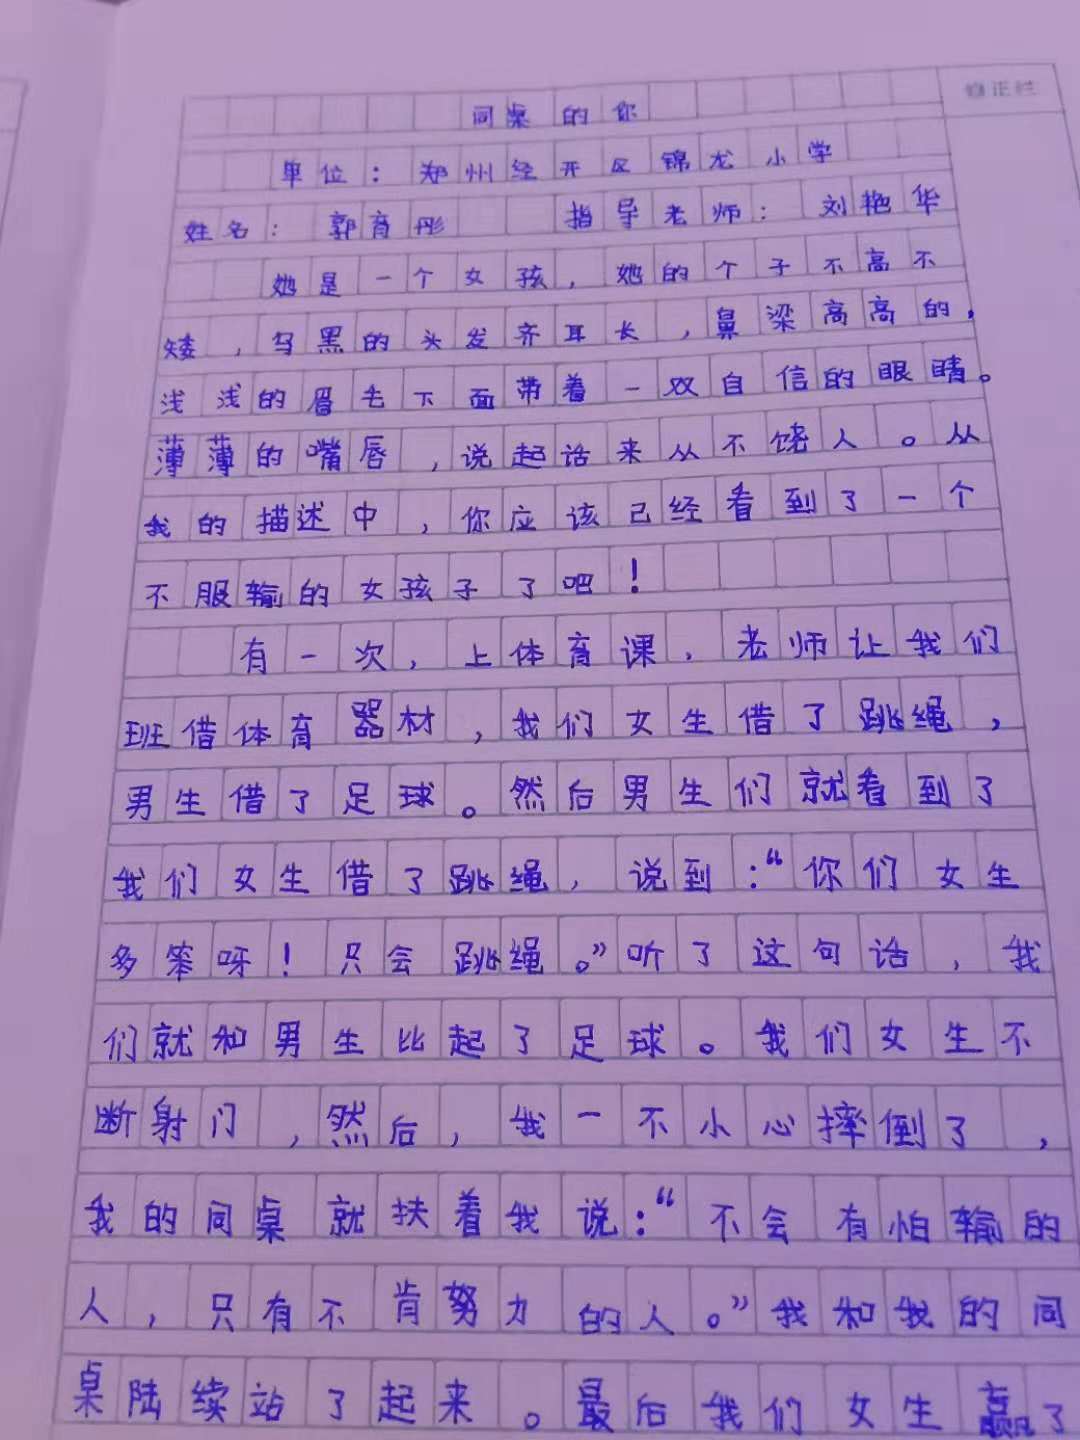 修正栏
同桌的你
单位：郑州经开区锦龙小学
姓名：郭育彤 指导老师：刘艳华
她是一个女孩，她的个子不高不
矮，乌黑的头发齐耳长，鼻梁高高的，
浅浅的眉毛下面带着一双自信的眼睛。
薄薄的嘴唇，说起话来从不饶人。从
我的描述中，你应该已经看到了一个
不服输的女孩子了吧！
有一次，上体育课，老师让我们
班借体育器材，我们女生借了跳绳，
男生借了足球。然后男生们就看到了
我们女生借了跳绳，说到：“你们女生
多笨呀！只会跳绳。”听了这句话，我
们就和男生比起了足球。我们女生不
断射门，然后，我一不小心摔倒了，
我的同桌就扶着我说：“不会有怕输的
人，只有不肯努力的人。”我和我的同
桌陆续站了起来。最后我们女生赢了